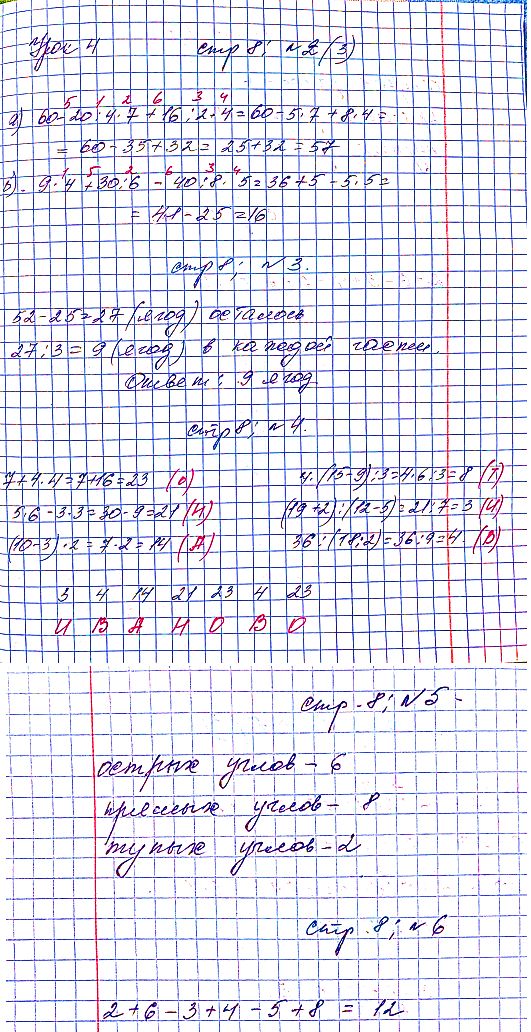 Урок 4 стр 8; №2 (3)
5 1 2 6 3 4
а) 60-20:4·7+16:2·4=60-5·7+8·4=
=60-35+32=25+32=57
1 5 2 6 3 4
б). 9·4+30:6-40:8·5=36+5-5·5=
=41-25=16
стр 8; №3.
52-25=27 (ягод) осталось
27:3=9 (ягод) в каждой части.
Ответ: 9 ягод
стр 8; №4.
7+4·4=7+16=23 (О) 4·(15-9):3=4·6:3=8 (Т)
5·6-3·3=30-9=21 (Н) (19+2):(12-5)=21:7=3 (И)
(10-3)·2=7·2=14 (А) 36:(18:2)=36:9=4. (В)
3 4 14 21 23 4 23
И В А Н О В О
стр. 8; №5-
острых углов-6
прямых углов-8
тупых углов-2
стр. 8; №6
2+6-3+4-5+8=12